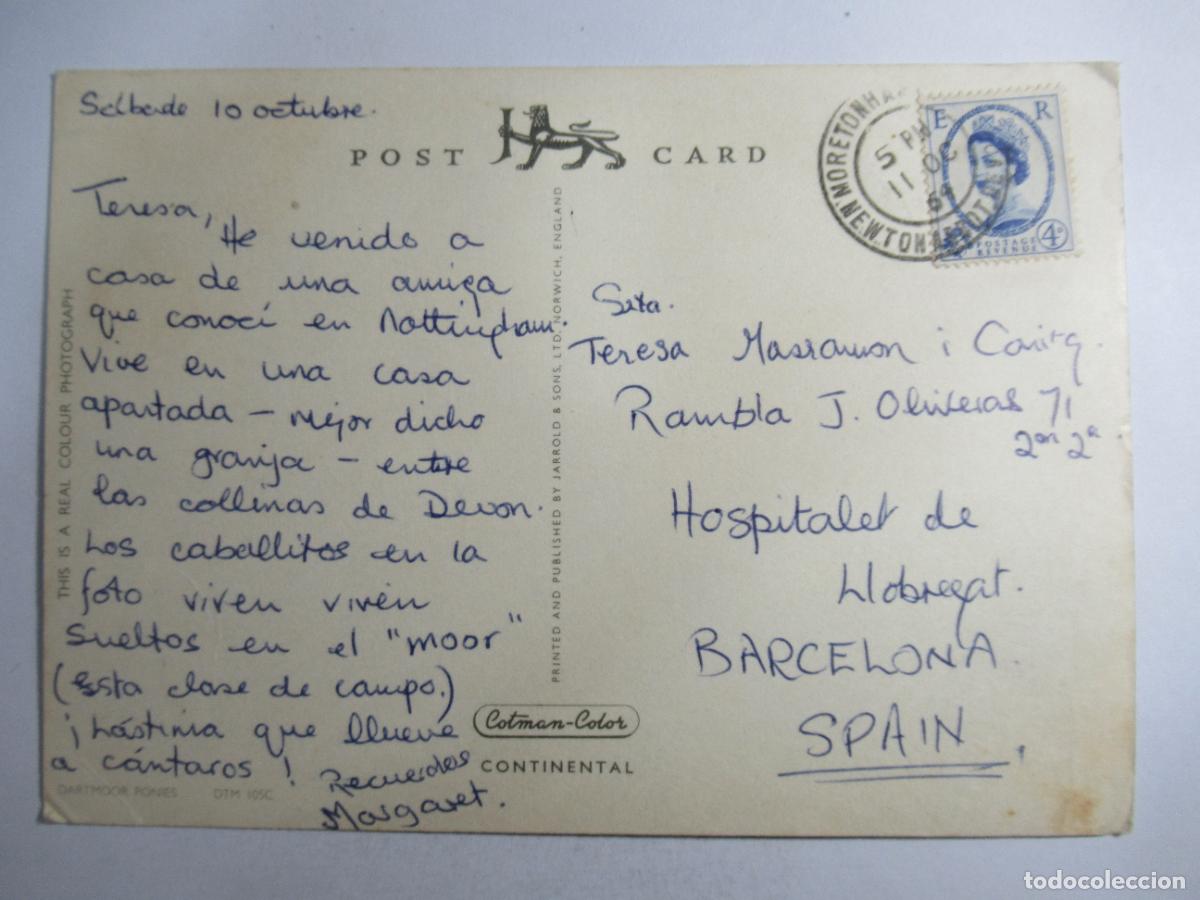 Sábado 10 octubre.
POST CARD
Teresa,
He venido a
casa de una amiga
que conocí en Nottingham.
Vive en una casa
apartada — mejor dicho
una granja — entre
las collinas de Devon.
Los caballitos en la
foto viven viven
sueltos en el "moor"
(esta clase de campo.)
¡Lástima que llueve
a cántaros!
Recuerdos
Margaret.
DARTMOOR PONIES DTM 105C
THIS IS A REAL COLOUR PHOTOGRAPH
PRINTED AND PUBLISHED BY JARROLD & SONS, LTD, NORWICH, ENGLAND
Cotman-Color
CONTINENTAL
MORETONHA
NEWTON ABBOT DEVO
5 PM
11 OC
E R
POSTAGE
REVENUE
4D
Srta.
Teresa Massamon i
Rambla J. Oliveras 71
2on 2a
Hospitalet de
Llobregat.
BARCELONA.
SPAIN.
todocoleccion